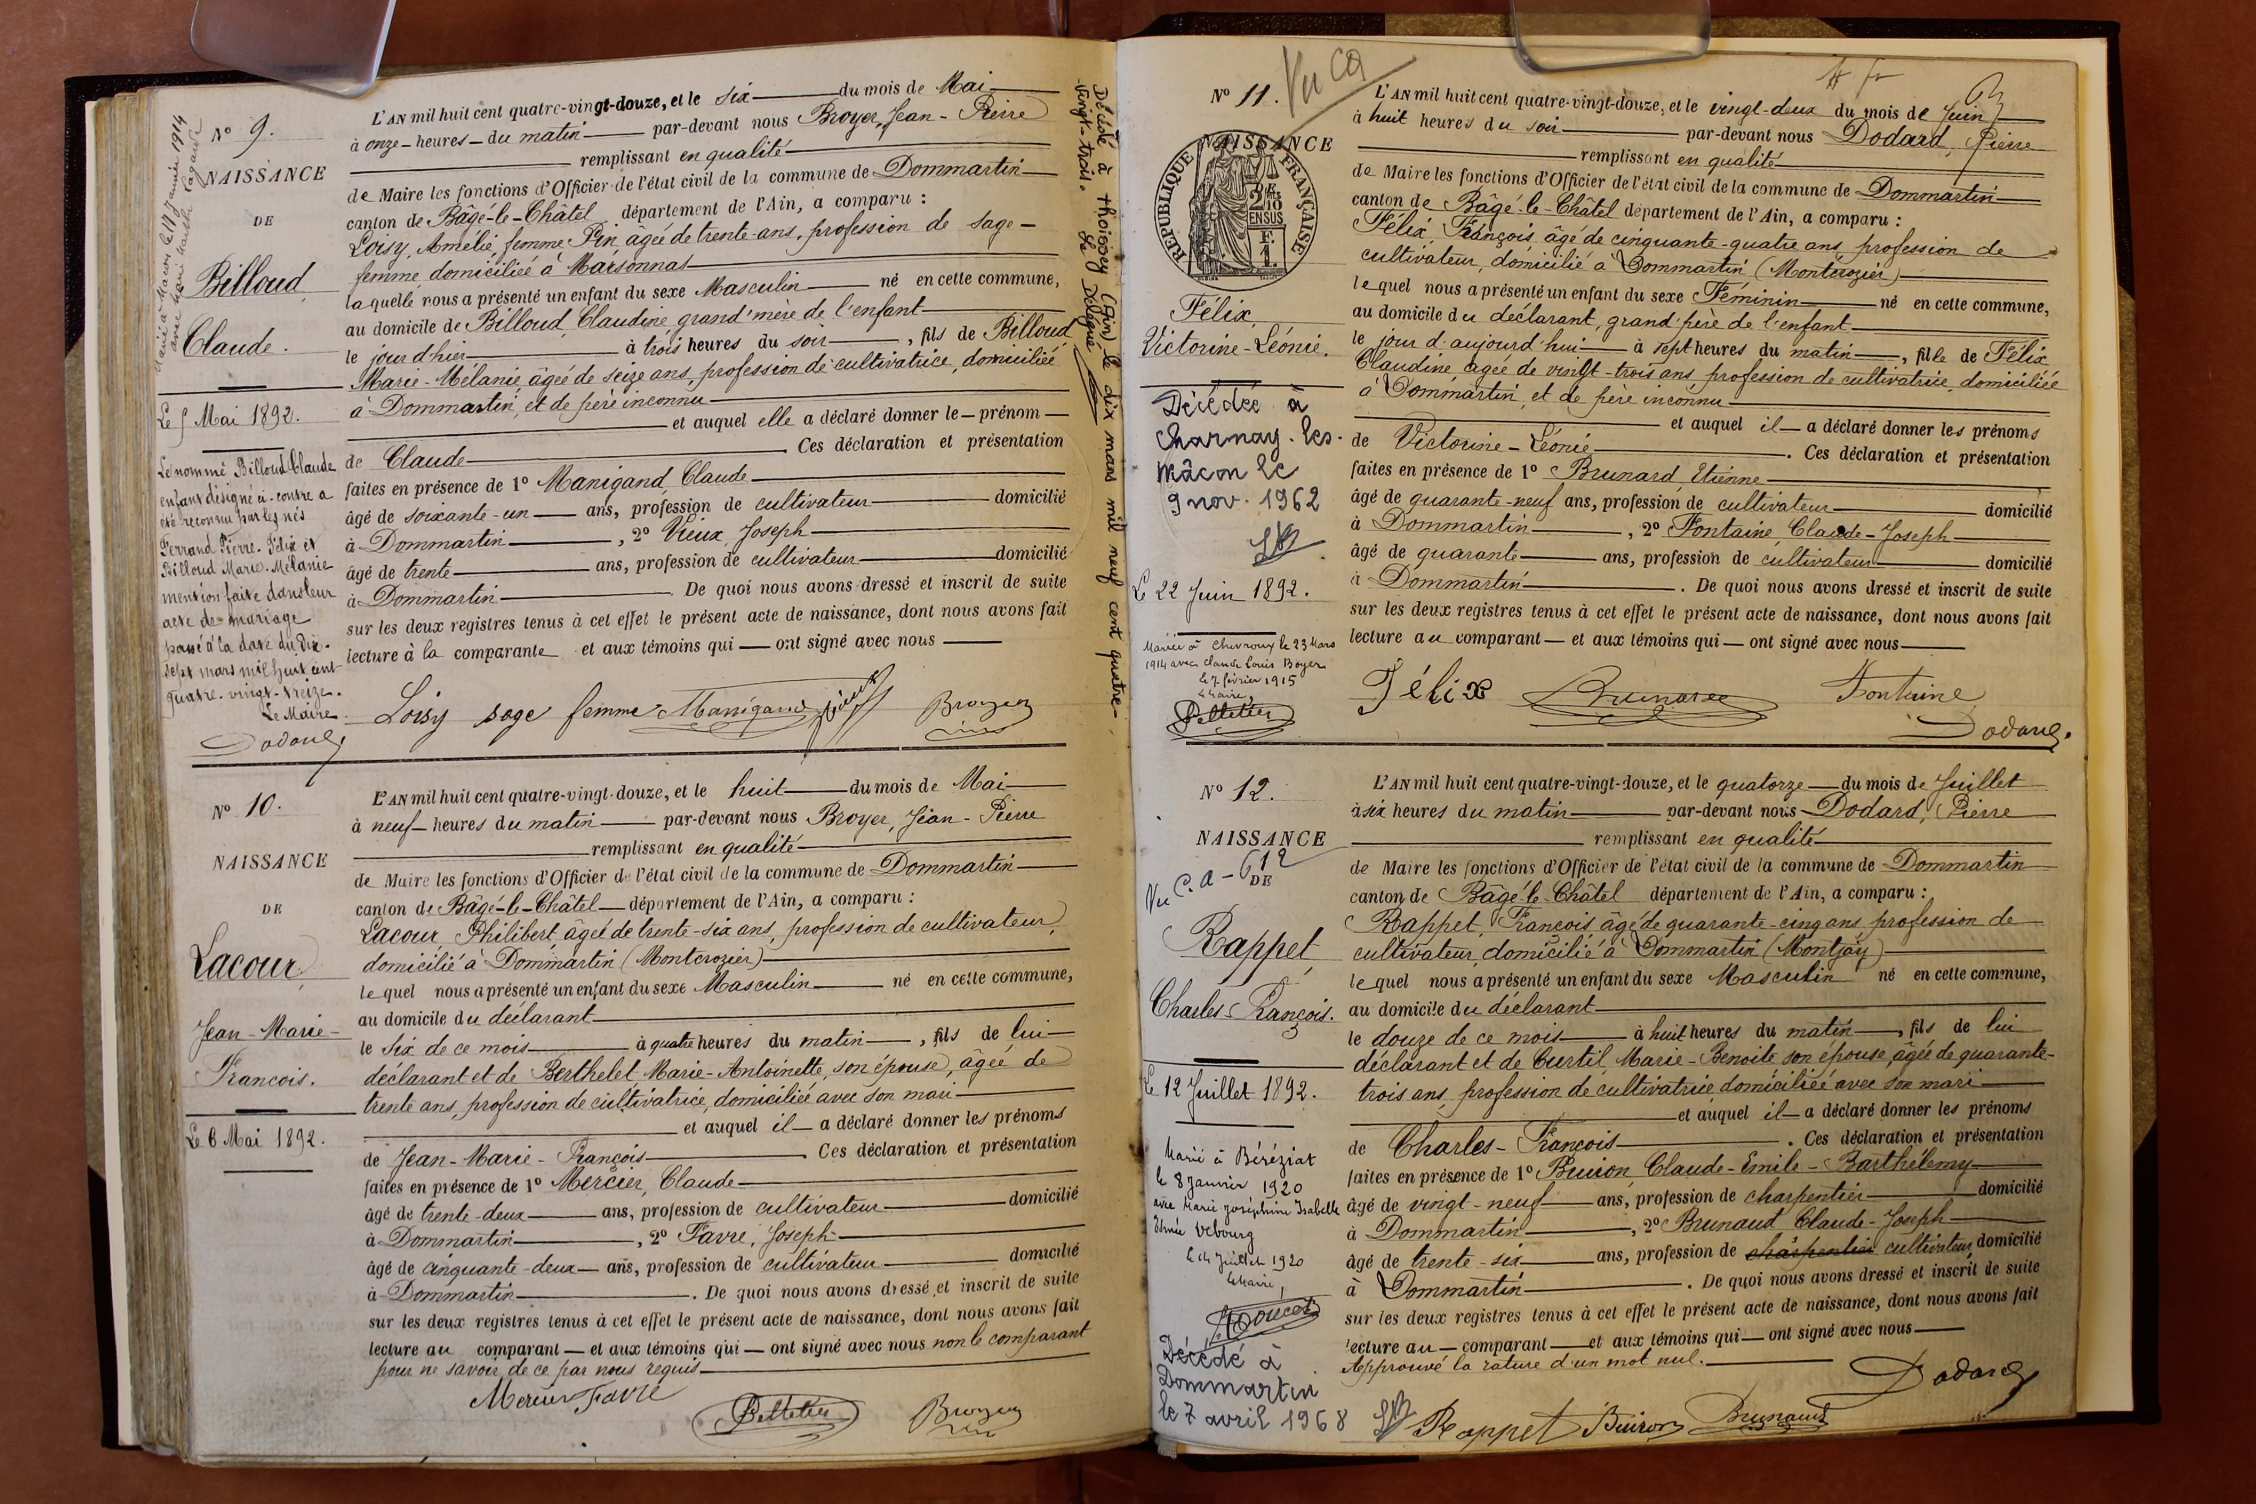 N° 9.
NAISSANCE
DE
Billoud
Claude.
Le 5 Mai 1892.
Le nommé Billoud Claude
enfant désigné ci-contre a
été reconnu par les nés
Ferrand Pierre-Félix et
Billoud Marie-Mélanie
mention faite dans leur
acte de mariage
passé à la date du dix-
sept mars mil huit cent-
quatre-vingt-treize.
Le Maire
Dodard
Marié à Macon le 17 janvier 1914
avec
L'AN mil huit cent quatre-vingt-douze, et le six du mois de Mai
à onze heures du matin par-devant nous Broyer, Jean-Pierre
remplissant en qualité
de Maire les fonctions d'Officier de l'état civil de la commune de Dommartin
canton de Bâgé-le-Châtel département de l'Ain, a comparu :
Loisy, Amélie, femme Pin, âgée de trente ans, profession de sage-
femme, domiciliée à Marsonnas
laquelle nous a présenté un enfant du sexe Masculin né en cette commune,
au domicile de Billoud Claudine, grand'mère de l'enfant
le jour d'hier à trois heures du soir, fils de Billoud
Marie-Mélanie, âgée de seize ans, profession de cultivatrice, domiciliée
à Dommartin, et de père inconnu
et auquel elle a déclaré donner le prénom
de Claude. Ces déclaration et présentation
faites en présence de 1° Manigand, Claude
âgé de soixante-un ans, profession de cultivateur domicilié
à Dommartin, 2° Vieux, Joseph
âgé de trente ans, profession de cultivateur domicilié
à Dommartin. De quoi nous avons dressé et inscrit de suite
sur les deux registres tenus à cet effet le présent acte de naissance, dont nous avons fait
lecture à la comparante et aux témoins qui ont signé avec nous
Loisy sage femme Manigand Vieux Broyer
Décédé à Thoissey (Ain) le dix mars mil neuf cent quatre-
vingt-trois. Le Délégué
N° 10.
NAISSANCE
DE
Lacour,
Jean-Marie-
François.
Le 6 Mai 1892.
L'AN mil huit cent quatre-vingt-douze, et le huit du mois de Mai
à neuf heures du matin par-devant nous Broyer, Jean-Pierre
remplissant en qualité
de Maire les fonctions d'Officier de l'état civil de la commune de Dommartin
canton de Bâgé-le-Châtel département de l'Ain, a comparu :
Lacour, Philibert, âgé de trente-six ans, profession de cultivateur,
domicilié à Dommartin (Montcrozier)
lequel nous a présenté un enfant du sexe Masculin né en cette commune,
au domicile du déclarant
le six de ce mois à quatre heures du matin, fils de lui
déclarant et de Berthelet, Marie-Antoinette, son épouse, âgée de
trente ans, profession de cultivatrice, domiciliée avec son mari
et auquel il a déclaré donner les prénoms
de Jean-Marie-François. Ces déclaration et présentation
faites en présence de 1° Mercier, Claude
âgé de trente-deux ans, profession de cultivateur domicilié
à Dommartin, 2° Favre, Joseph
âgé de cinquante-deux ans, profession de cultivateur domicilié
à Dommartin. De quoi nous avons dressé et inscrit de suite
sur les deux registres tenus à cet effet le présent acte de naissance, dont nous avons fait
lecture au comparant et aux témoins qui ont signé avec nous non le comparant
pour ne savoir, de ce par nous requis
Mercier Favre Pelletier Broyer
N° 11.
Vu ca
NAISSANCE
REPUBLIQUE FRANÇAISE
Félix
Victorine-Léonie.
Décédée à
Charnay-les-
Mâcon le
9 nov. 1962
Le 22 Juin 1892.
Mariée à Chevroux le 23 Mars
1914 avec Claude Louis Boyer
le 7 février 1915
Le Maire,
Pelletier
L'AN mil huit cent quatre-vingt-douze, et le vingt-deux du mois de Juin
à huit heures du soir par-devant nous Dodard, Pierre
remplissant en qualité
de Maire les fonctions d'Officier de l'état civil de la commune de Dommartin
canton de Bâgé-le-Châtel département de l'Ain, a comparu :
Félix, François, âgé de cinquante-quatre ans, profession de
cultivateur, domicilié à Dommartin (Montcrozier)
lequel nous a présenté un enfant du sexe Féminin né en cette commune,
au domicile du déclarant, grand'père de l'enfant
le jour d'aujourd'hui à sept heures du matin, fille de Félix
Claudine, âgée de vingt-trois ans, profession de cultivatrice, domiciliée
à Dommartin, et de père inconnu
et auquel il a déclaré donner les prénoms
de Victorine-Léonie. Ces déclaration et présentation
faites en présence de 1° Brunard Etienne
âgé de quarante-neuf ans, profession de cultivateur domicilié
à Dommartin, 2° Fontaine, Claude-Joseph
âgé de quarante ans, profession de cultivateur domicilié
à Dommartin. De quoi nous avons dressé et inscrit de suite
sur les deux registres tenus à cet effet le présent acte de naissance, dont nous avons fait
lecture au comparant et aux témoins qui ont signé avec nous
Félix Brunard Fontaine
Dodard.
N° 12.
NAISSANCE
DE
Vu C.a - 612
Rappet
Charles-François.
Le 12 Juillet 1892.
Marié à Béréziat
le 8 janvier 1920
avec Marie Joséphine Isabelle
le 14 Juillet 1920
Le Maire,
Décédé à
Dommartin
le 7 avril 1968
L'AN mil huit cent quatre-vingt-douze, et le quatorze du mois de Juillet
à six heures du matin par-devant nous Dodard, Pierre
remplissant en qualité
de Maire les fonctions d'Officier de l'état civil de la commune de Dommartin
canton de Bâgé-le-Châtel département de l'Ain, a comparu :
Rappet, François, âgé de quarante-cinq ans, profession de
cultivateur, domicilié à Dommartin (Montjay)
lequel nous a présenté un enfant du sexe Masculin né en cette commune,
au domicile du déclarant
le douze de ce mois à huit heures du matin, fils de lui
déclarant et de Curtil, Marie-Benoite, son épouse, âgée de quarante-
trois ans, profession de cultivatrice, domiciliée avec son mari
et auquel il a déclaré donner les prénoms
de Charles-François. Ces déclaration et présentation
faites en présence de 1° Buiron, Claude-Emile-Barthélemy
âgé de vingt-neuf ans, profession de charpentier domicilié
à Dommartin, 2° Brunaud Claude-Joseph
âgé de trente-six ans, profession de charpentier cultivateur domicilié
à Dommartin. De quoi nous avons dressé et inscrit de suite
sur les deux registres tenus à cet effet le présent acte de naissance, dont nous avons fait
lecture au comparant et aux témoins qui ont signé avec nous
Approuvé la rature d'un mot nul.
Dodard
Rappet Buiron Brunaud